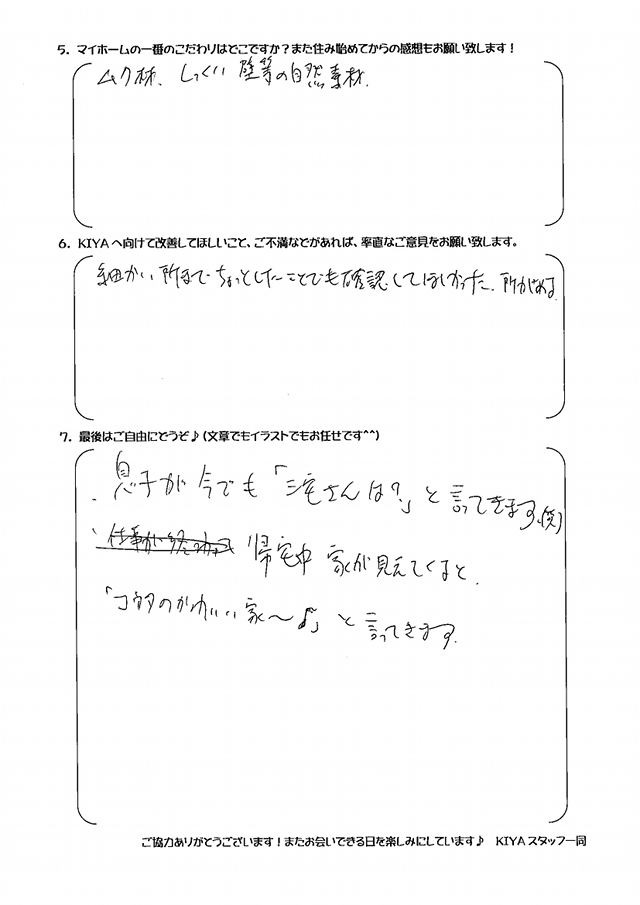 5. マイホームの一番のこだわりはどこですか？また住み始めてからの感想もお願い致します！
ムク材、しっくい壁等の自然素材。
6. KIYAへ向けて改善してほしいこと、ご不満などがあれば、率直なご意見をお願い致します。
細かい所まで ちょっとしたことでも確認してほしかった、所がある。
7. 最後はご自由にどうぞ♪(文章でもイラストでもお任せです^^)
、息子が今でも「三宅さんは？」と言ってきます。(笑)
、帰宅中 家が見えてくると、
「コウタのかわいい家〜♪」と言ってきます。
ご協力ありがとうございます！またお会いできる日を楽しみにしています♪ KIYAスタッフ一同